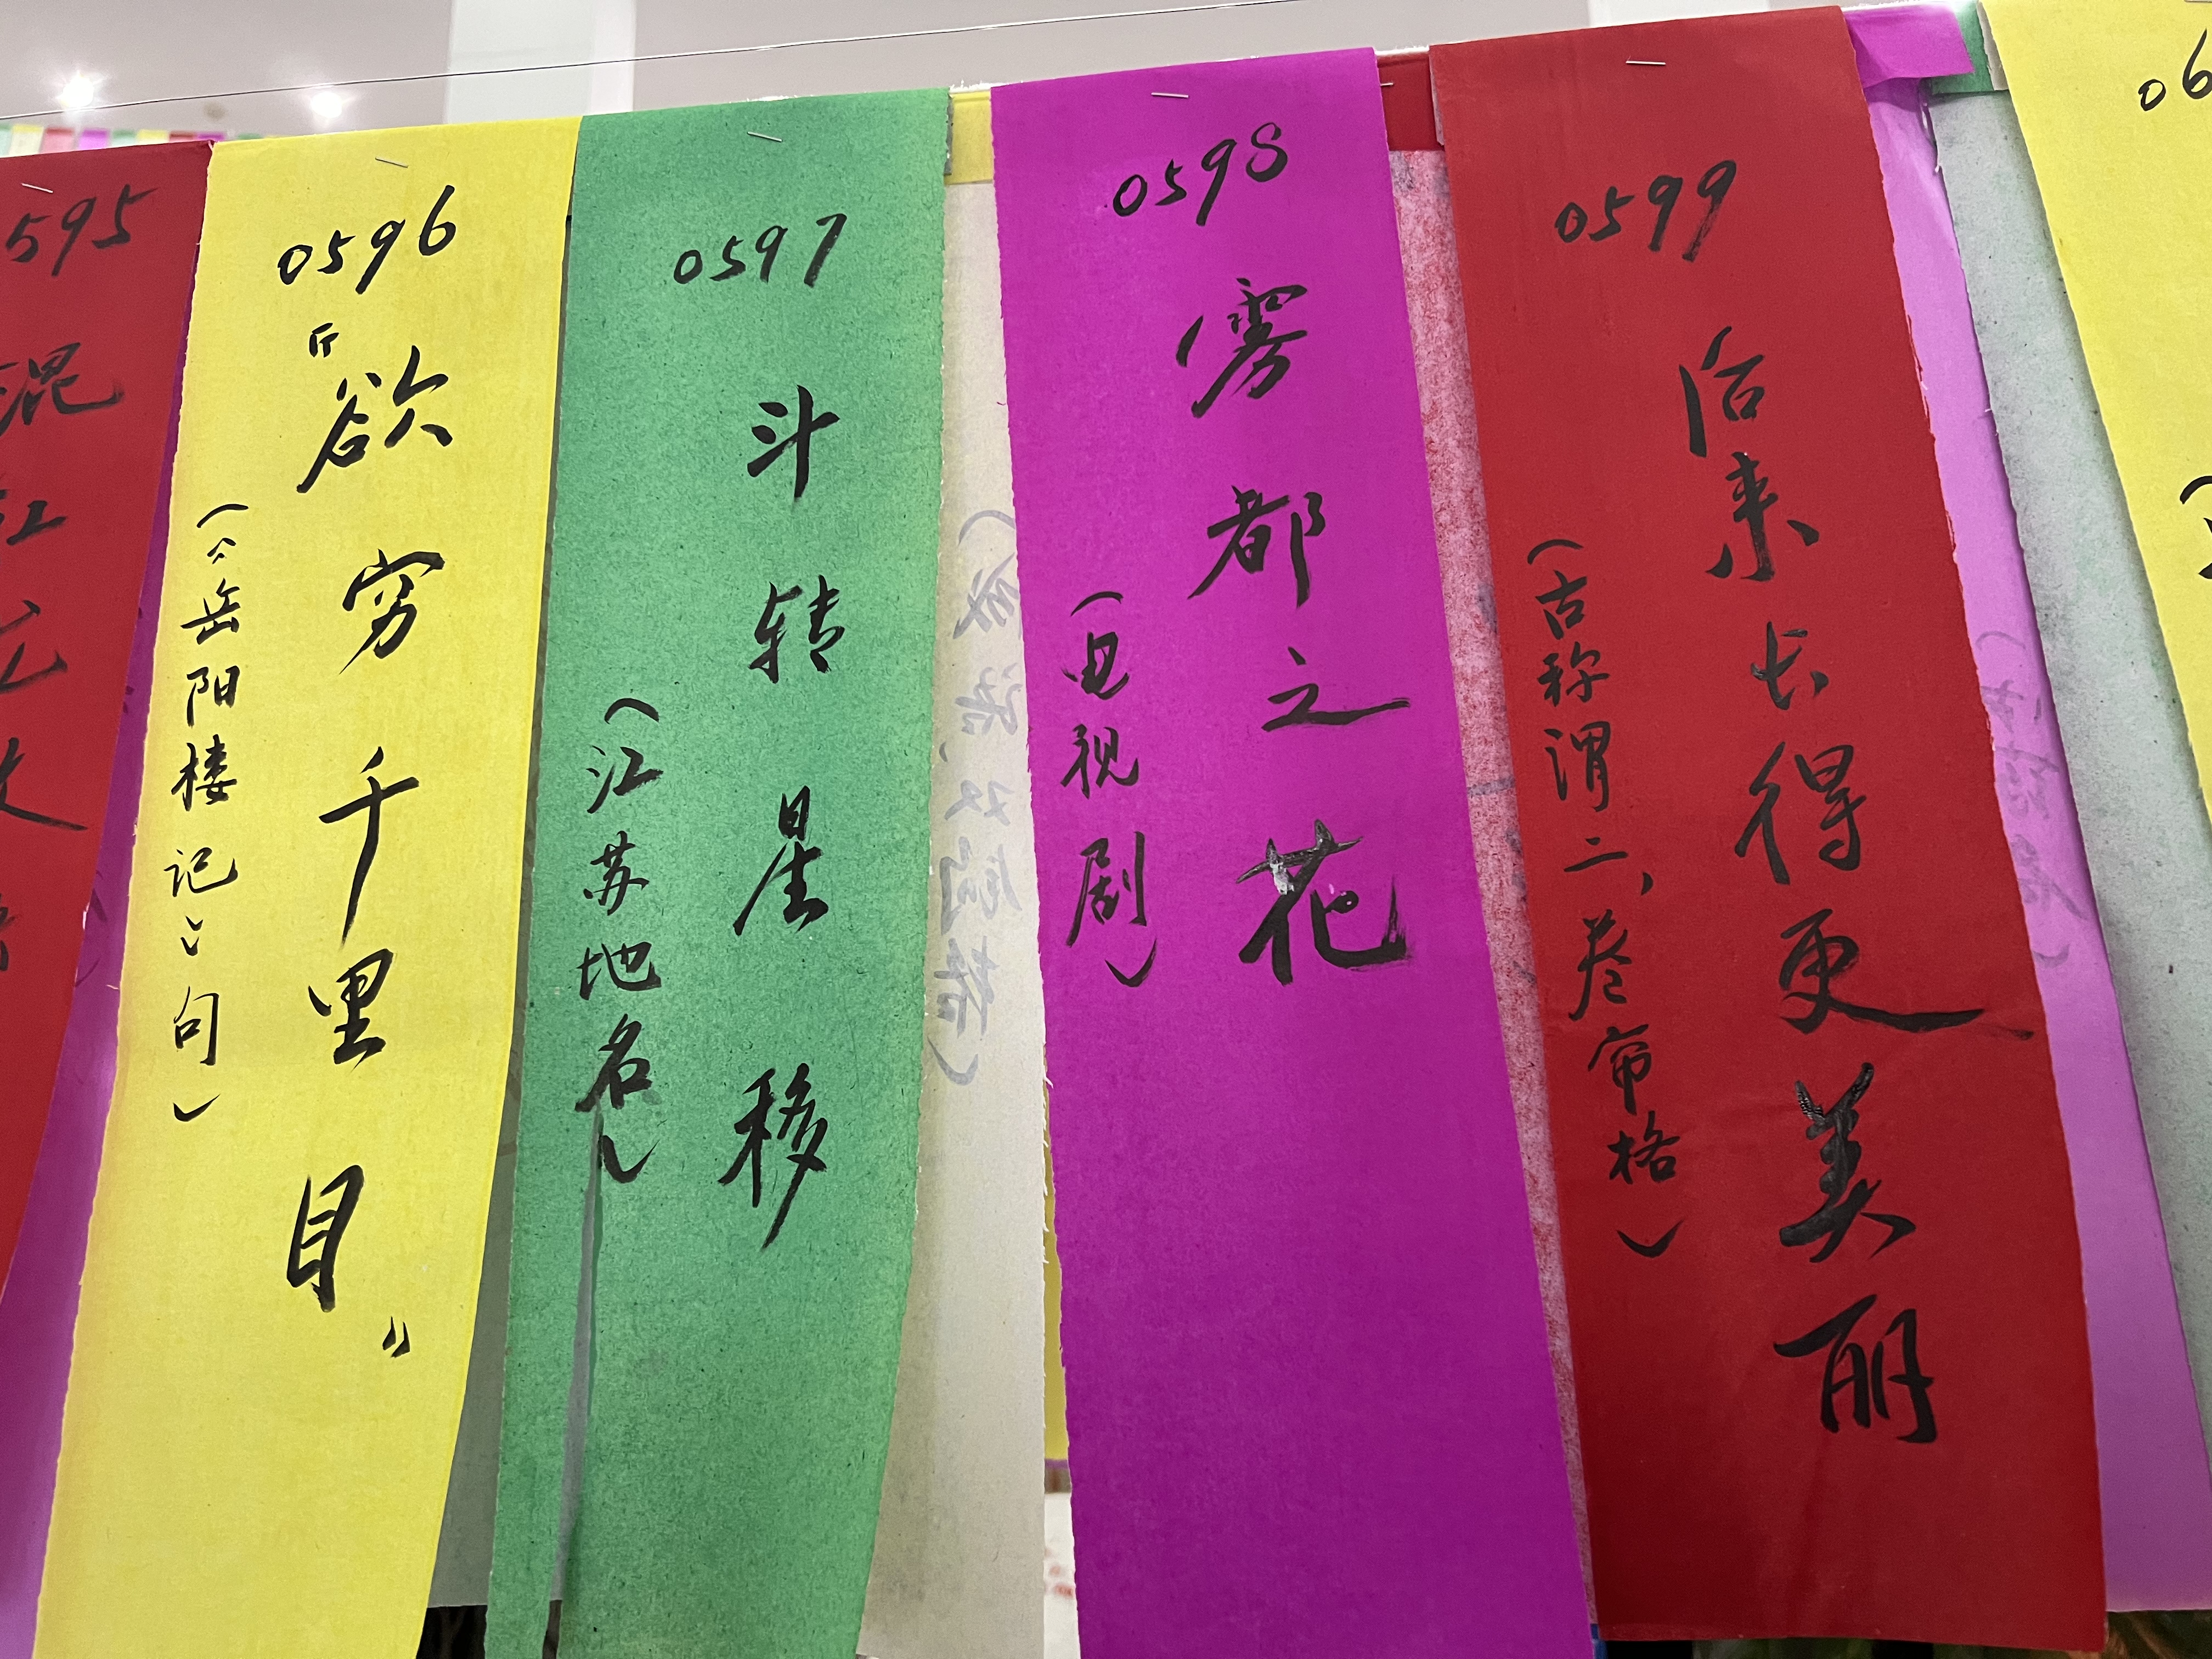 595
混
0596
“欲穷千里目”
(《岳阳楼记》句)
0597
斗转星移
(江苏地名)
0598
雾都之花
(电视剧)
0599
后来长得更美丽
(古称谓二、卷帘格)
06